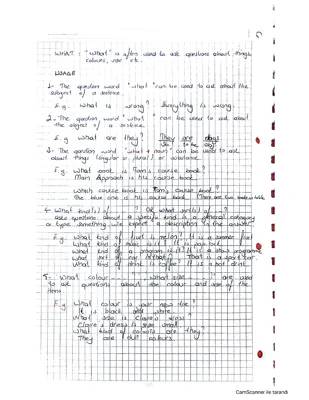 WHAT : "What" is a/an word to ask questions about things
colours, size etc.
USAGE
1- The question word "what" can be used to ask about the
subject of a sentence.
E.g. What is wrong? Everything is wrong.
2- The question word "what" can be used to ask about
the object of a sentence.
E.g What are they? They are dogs.
3- The question word "what + noun" can be used to ask
about things (singular or plural) or substance.
E.g. What book is Tom's course book?
Main Approach is his course book.
Which course book is Tom's course book?
The blue one is his course book.
4- What kind(s) of ? or what sort(s) of ?
asks questions about a specific kind in a general category
or type something with expect a description in the answer
E.g. What kind of fruit is melon? It is a summer fruit
What kind of music is it? It is
What kind of a program is it? It is a program
What sort of car is that? That is a sport car
What kind of drink is coffee? It is a hot drink.
5- What colour , What size are used
to ask questions about the colour and size of the
items.
E.g What colour is your new tie?
It is black and white.
What size is Claire's dress?
Claire's dress is size small.
What kind of colours are they?
They are dull colours.
CamScanner ile tarandı